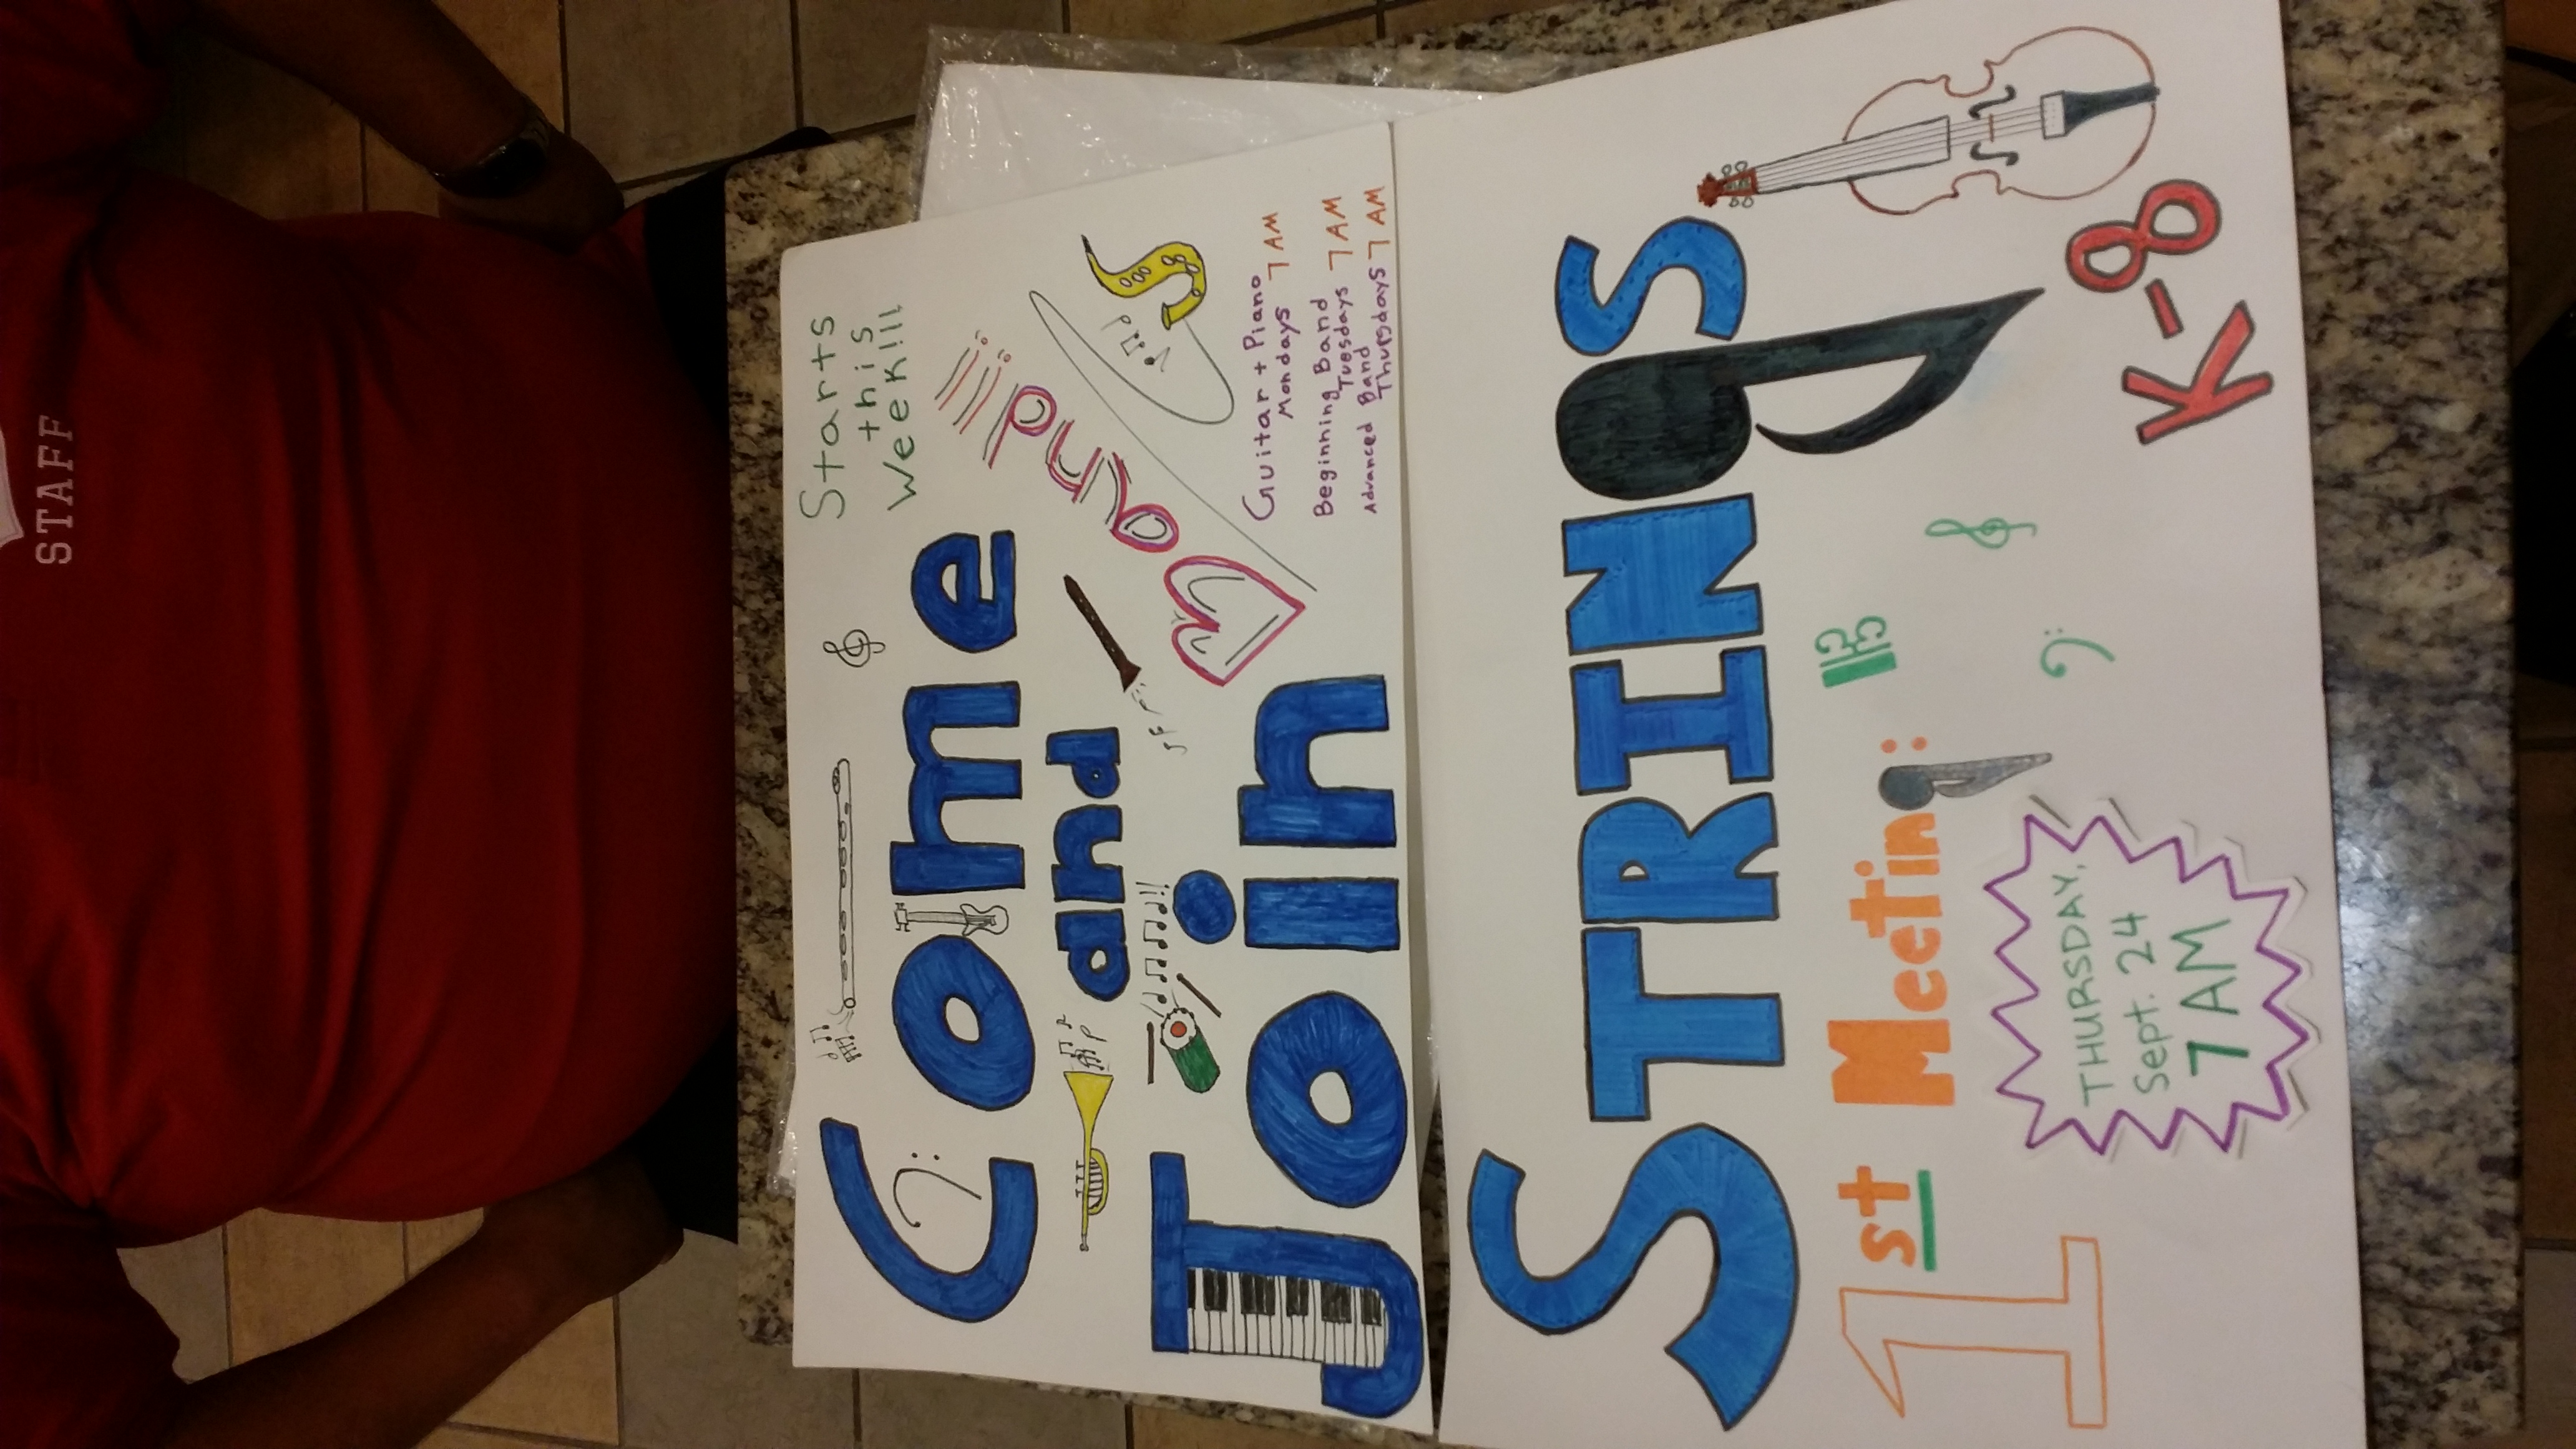 STAFF
Come
and
Join
Band!!!
Starts
this
Week!!!
Guitar + Piano
Mondays 7 AM
Beginning Band
Tuesdays 7 AM
Advanced Band
Thursdays 7 AM
STRINgS
1st Meeting:
THURSDAY,
Sept. 24
7 AM
K-8